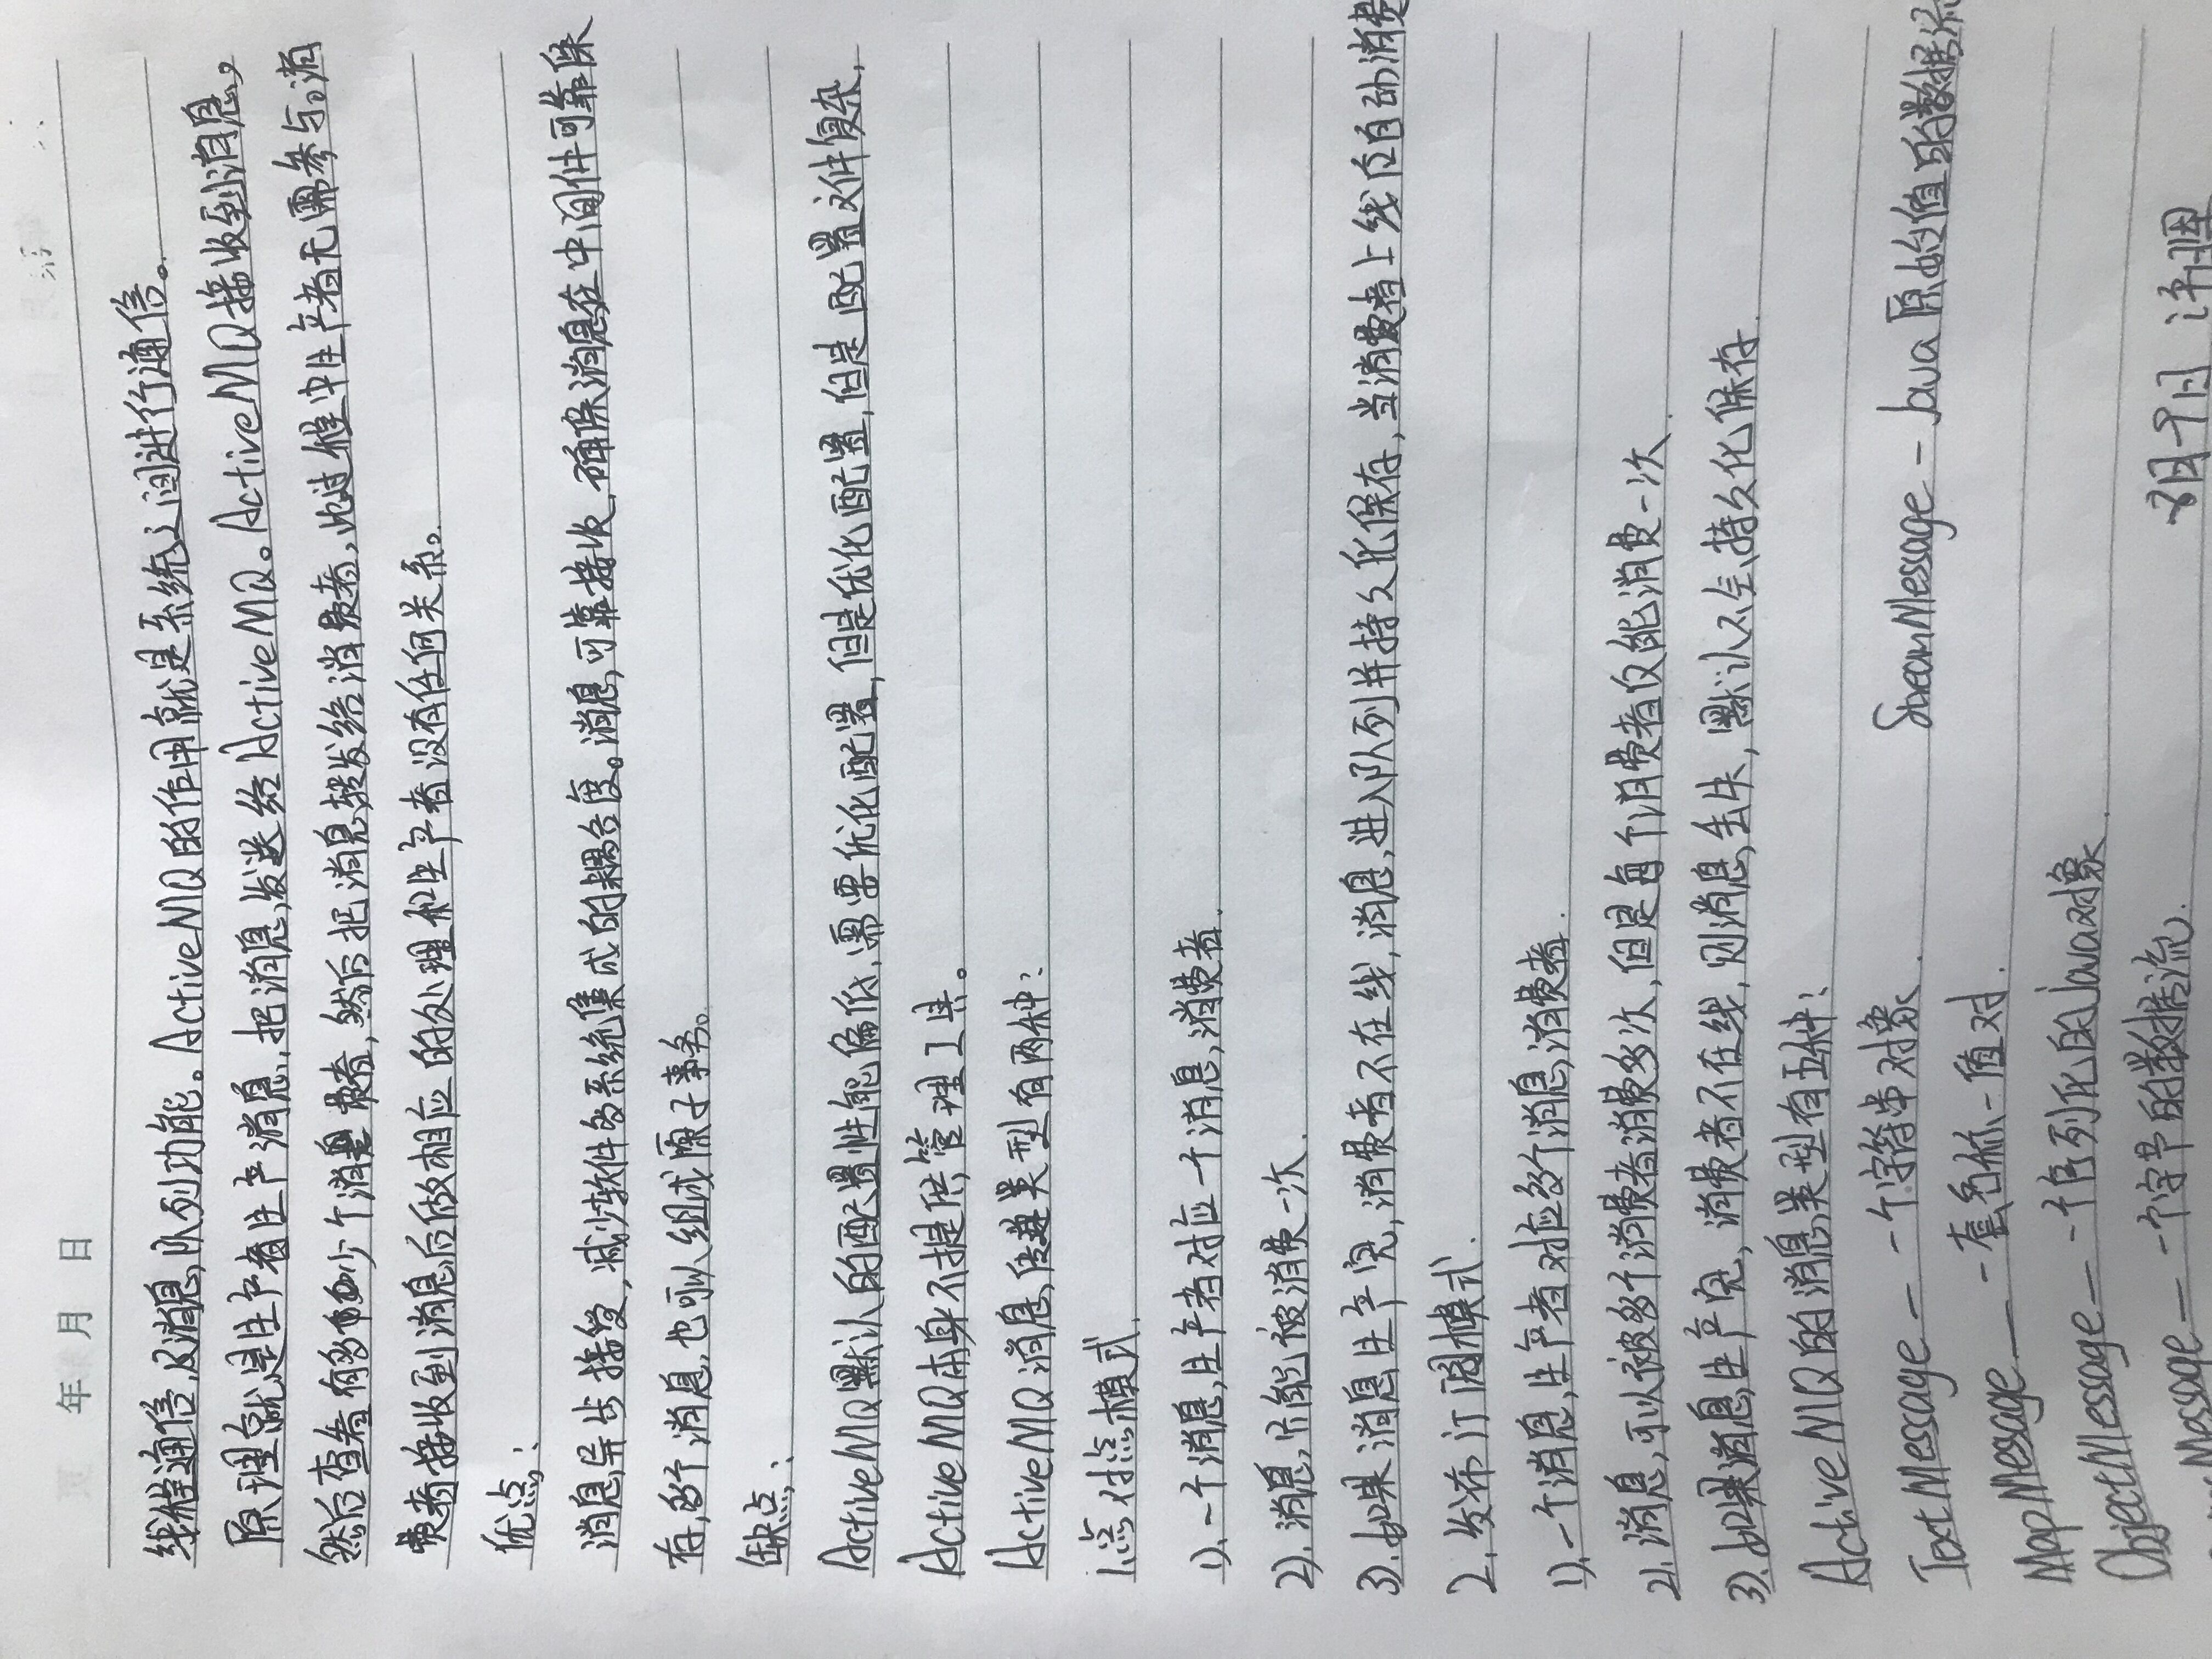 年 月 日
线程通信,及消息队列功能。ActiveMQ的作用就是系统之间进行通信。
原理就是生产者生产消息,把消息发送给ActiveMQ。ActiveMQ接收到消息,
然后查看有多少个消费者,然后把消息转发给消费者,此过程中生产者无需参与。消
费者接收到消息后做相应的处理和生产者没有任何关系。
优点:
消息异步接受,减少软件多系统集成的耦合度。消息可靠接收,确保消息在中间件可靠保
存,多个消息也可以组成原子事务。
缺点:
ActiveMQ默认的配置性能偏低,需要优化配置,但是优化配置,但是配置文件复杂,
ActiveMQ本身不提供管理工具。
ActiveMQ消息传递类型有两种:
1.点对点模式.
1).一个消息生产者对应一个消息消费者.
2).消息只能被消费一次.
3).如果消息生产完,消费者不在线,消息进入队列并持久化保存,当消费者上线后自动消费
2.发布订阅模式.
1).一个消息生产者对应多个消息消费者.
2).消息可以被多个消费者消费多次,但是每个消费者仅能消费一次.
3).如果消息生产完,消费者不在线,则消息丢失,默认不会持久化保存.
ActiveMQ的消息类型有五种:
TextMessage — 一个字符串对象. StreamMessage — Java原始值的数据流
MapMessage — 一套名称-值对.
ObjectMessage — 一个序列化的Java对象.
Message — 一个字节的数据流.
8月9日